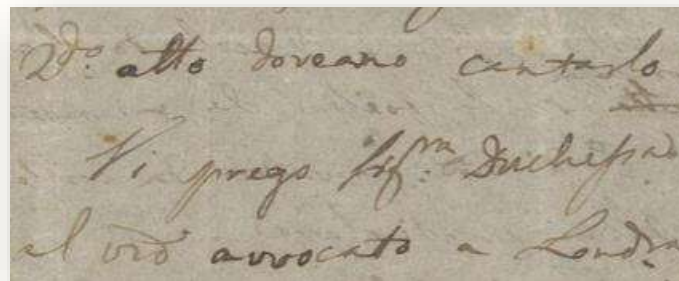 2do. alto doveano cantarlo
Vi prego Sigra. Duchessa
al vro avvocato a Londra